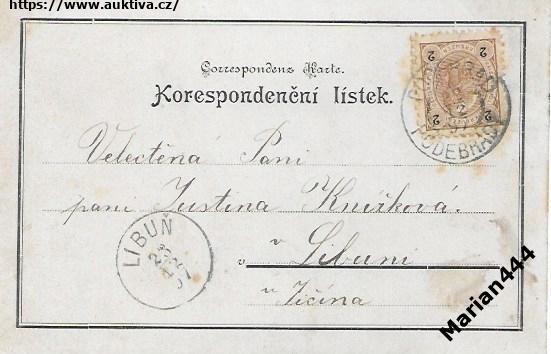 https://www.auktiva.cz/
Correspondenz Karte.
Korespondenční lístek.
2 2
2 2
PODĚBRADY
Velectěná Paní
paní Justina Knížková.
v Libuni
u Jičína
LIBUŇ
Marian444